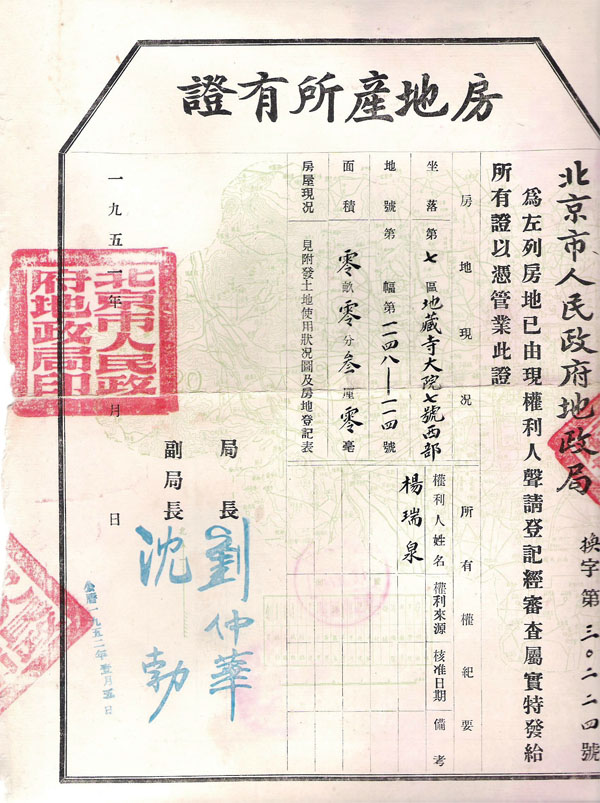 房地產所有證
北京市人民政府地政局
換字第三〇二二四號
為左列房地已由現權利人聲請登記經審查屬實特發給
所有證以憑管業此證
房地現况
所有權紀要
坐落
第七區地藏寺大院七號西部
權利人姓名
權利來源
核准日期
備考
地號
第一幅第一一四八—一一四號
楊瑞泉
面積
零畝零分叁厘零毫
房屋現况
見附發土地使用狀况圖及房地登記表
局長
劉仲華
副局長
沈勃
一九五一年
月
日
公曆一九五二年
月
日
北京市人民政
府地政局印